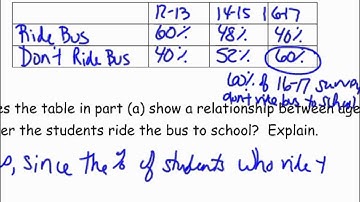 12-13 14-15 16-17
Ride Bus 60% 48% 40%
Don't Ride Bus 40% 52% 60%
60% of 16-17
don't ride bus to
es the table in part (a) show a relationship between age
er the students ride the bus to school? Explain.
, since the % of students who ride